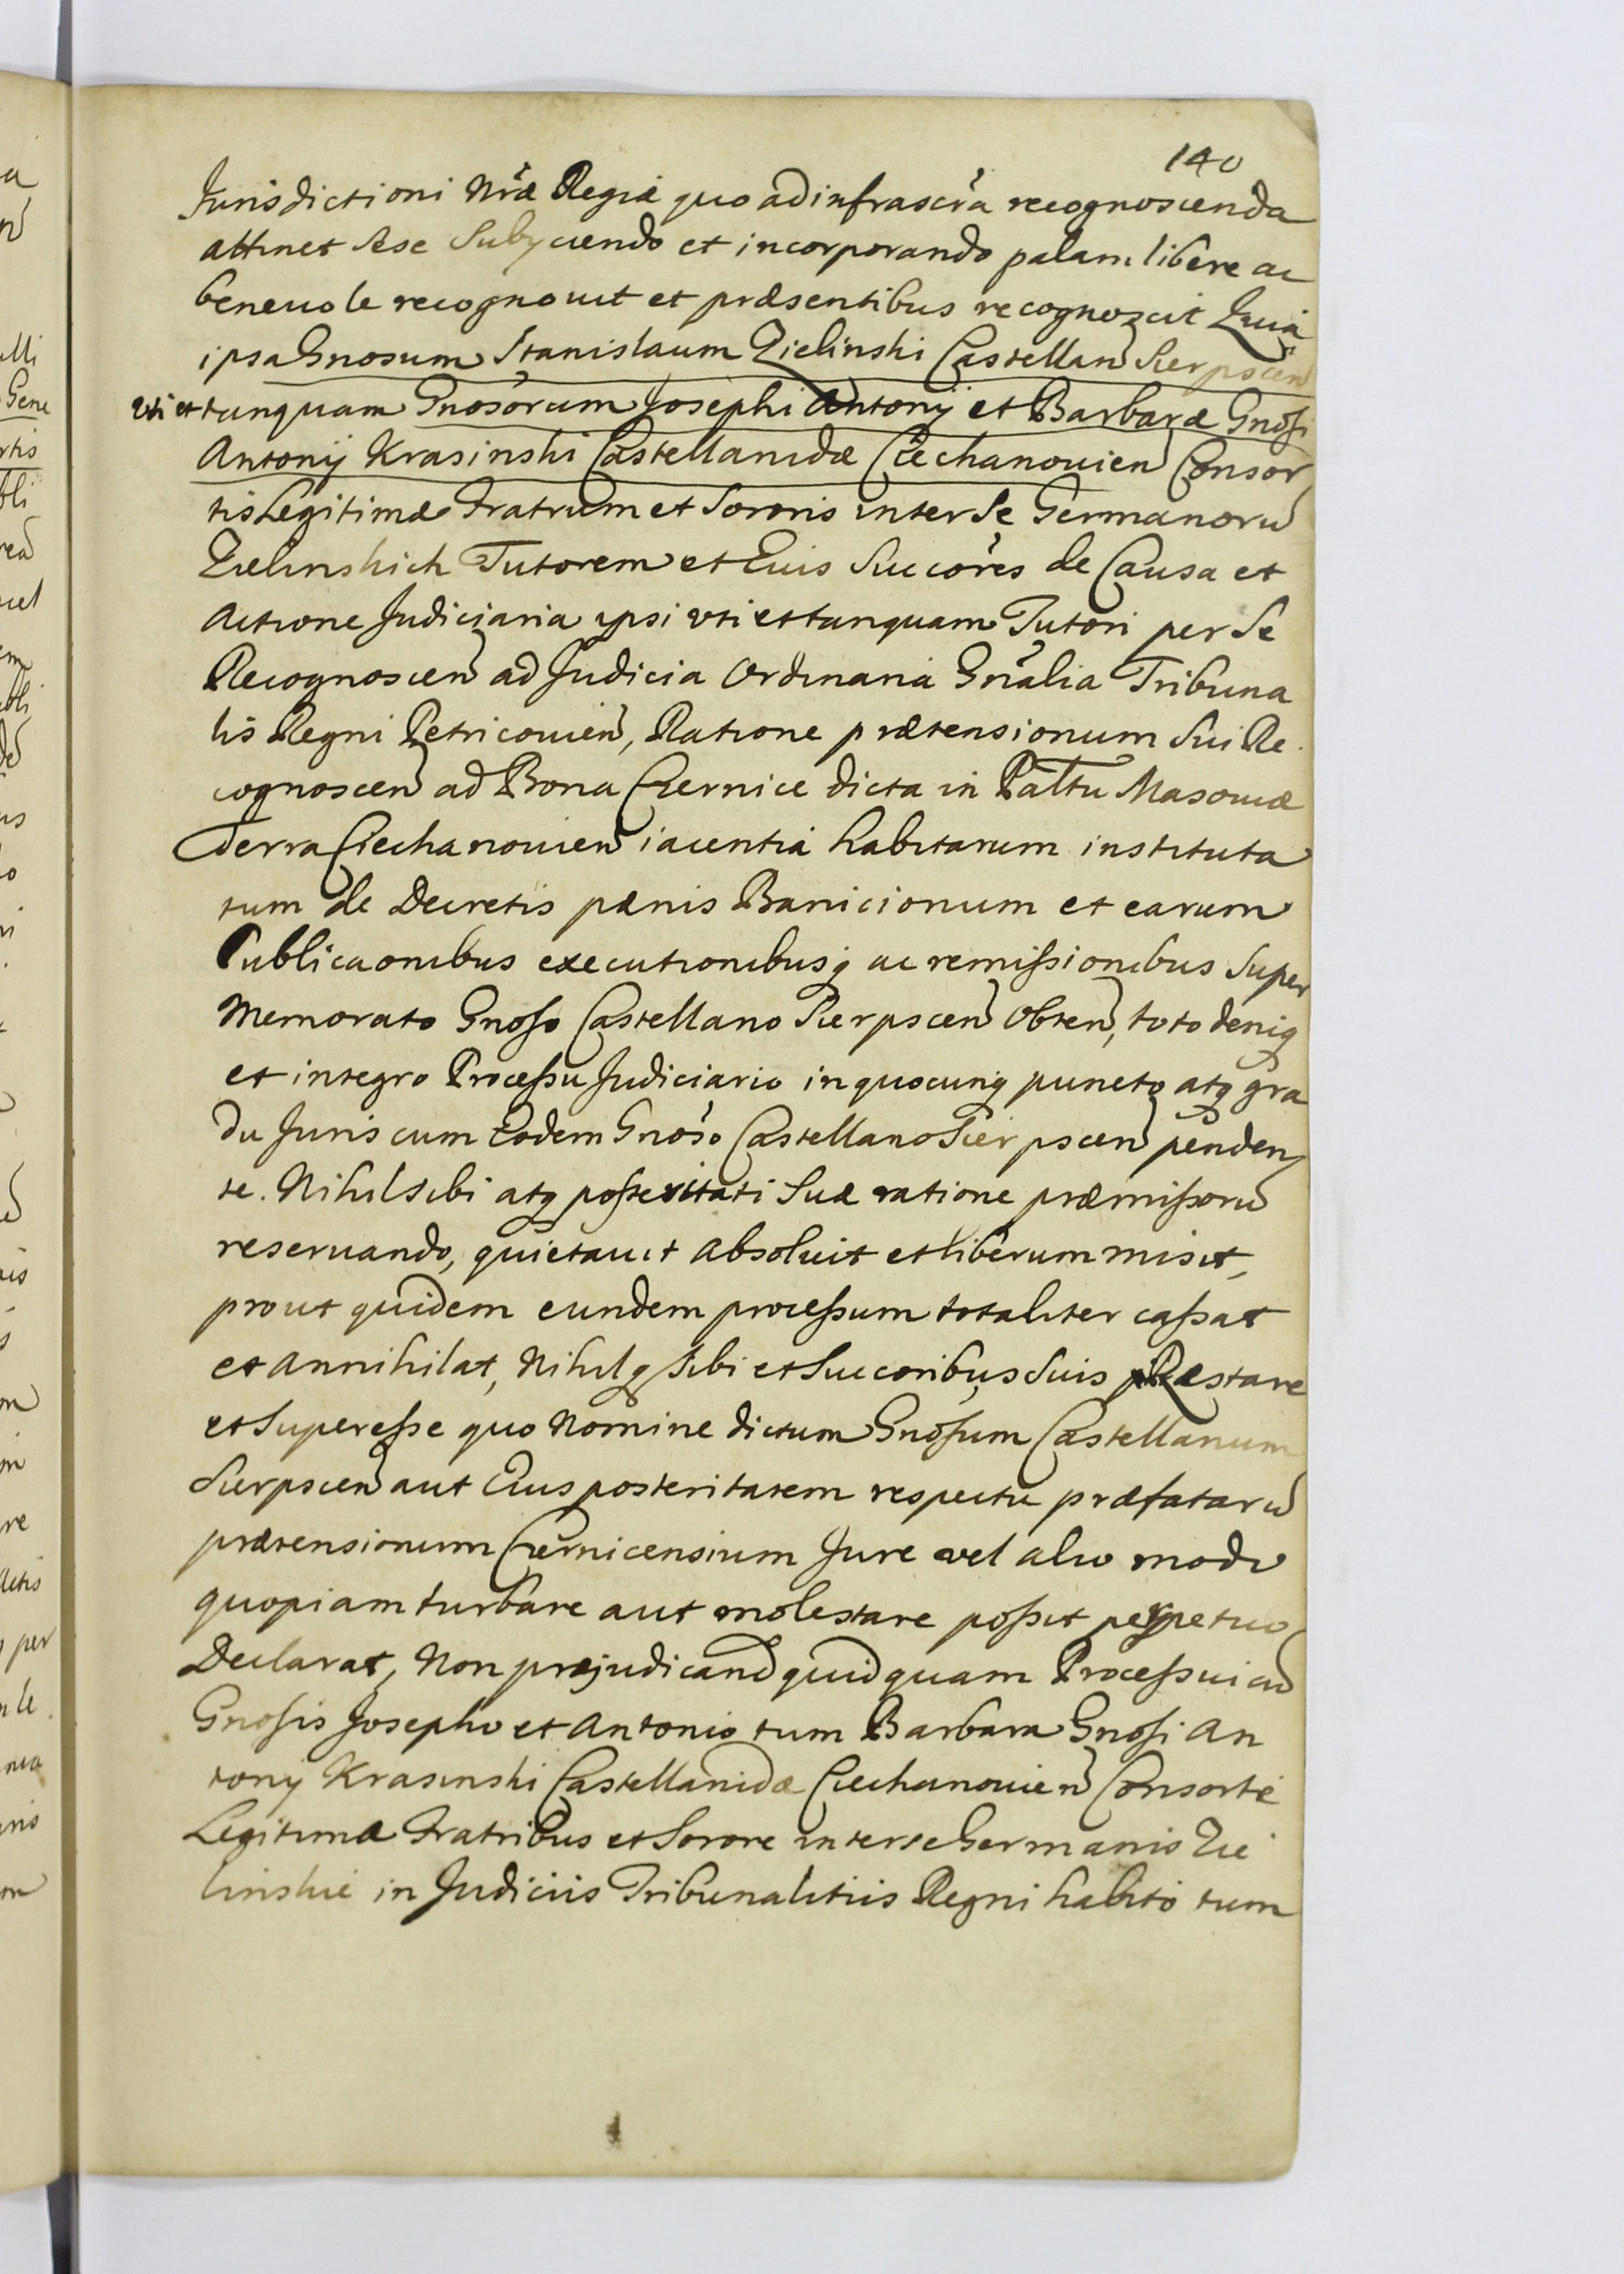 140
Jurisdictioni Nræ Regiæ quo ad infrascra recognoscenda
attinet sese Subyciendo et incorporando palam libere ac
beneuole recognouit et præsentibus recognoscit Quia
ipsa Gnosum Stanislaum Zielinski Castellan Sierpscen
uti et tanquam Gnosorum Josephi Antonij et Barbaræ Gnosi
Antonij Krasinski Castellanidæ Ciechanouien Consor
tis Legitimæ Fratrum et Sororis inter se Germanoru
Zielinskich Tutorem et Eius Succores de Causa et
Actione Judiciaria ipsi uti et tanquam Tutori per se
Recognoscen ad Judicia Ordinaria Gnalia Tribuna
lis Regni Petricouien, Ratione prætensionum sui Re
cognoscen ad Bona Czernice dicta in Palttu Masouiæ
Terra Ciechanouien iacentia habitarum instituta
tum de Decretis pænis Banicionum et earum
Publicaonibus executionibusq ac remissionibus super
Memorato Gnoso Castellano Sierpscen Obten, toto deniq
et integro Processu Judiciario in quocunq puncto atq gra
du Juris cum Eodem Gnoso Castellano Sierpscen penden
te. Nihil sibi atq posteritati suæ ratione præmissoru
reseruando, quietauit absoluit et liberum misit,
prout quidem eundem processum totaliter cassat
et annihilat, Nihilq sibi et Succoribus suis præstare
et superesse quo Nomine dictum Gnosum Castellanum
Sierpscen aut Eius posteritatem respectu præfataru
prætensionum Czernicensium Jure vel alio modo
quopiam turbare aut molestare possit perpetuo
Declarat, Non præjudicand quidquam Processui cu
Gnosis Josepho et Antonio tum Barbara Gnosi An
tonij Krasinski Castellanidæ Ciechanouien Consorte
Legitima Fratribus et Sorore inter se Germanis Zie
linskie in Judiciis Tribunalitiis Regni habito tum